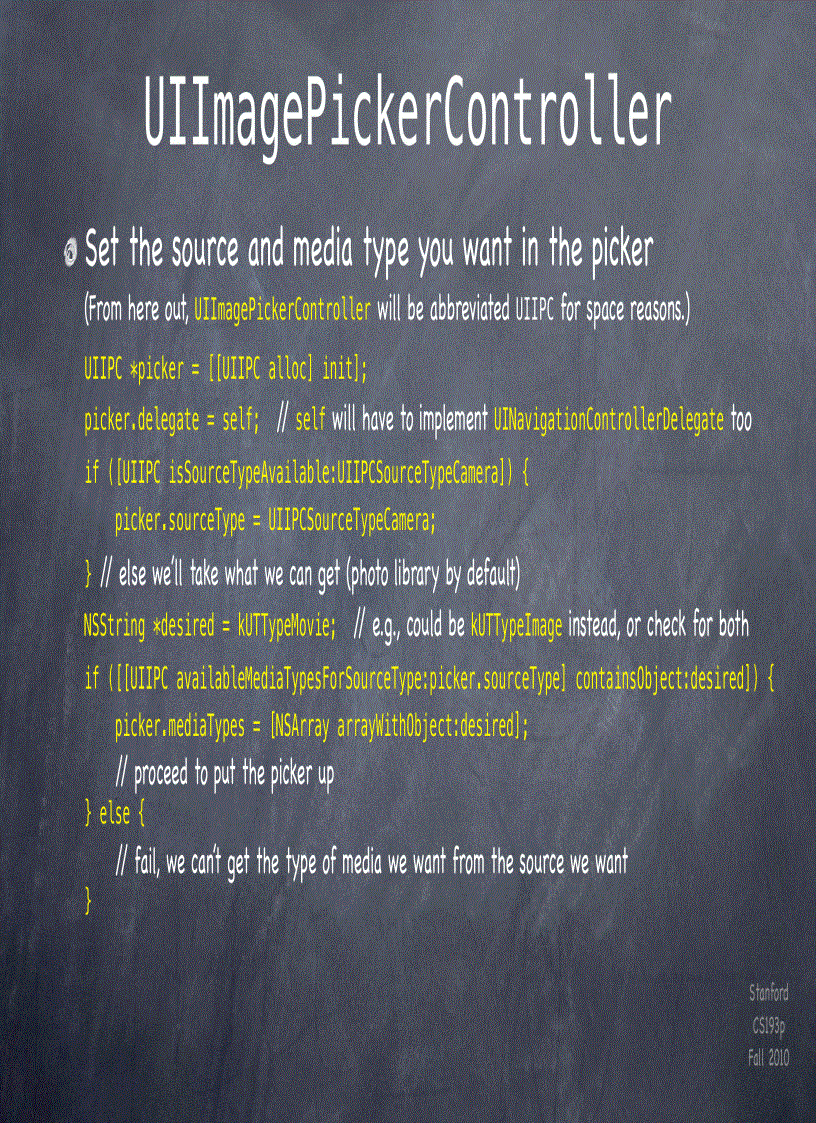 UIImagePickerController
Set the source and media type you want in the picker
(From here out, UIImagePickerController will be abbreviated UIIPC for space reasons.)
UIIPC *picker = [[UIIPC alloc] init];
picker.delegate = self; // self will have to implement UINavigationControllerDelegate too
if ([UIIPC isSourceTypeAvailable:UIIPCSourceTypeCamera]) {
picker.sourceType = UIIPCSourceTypeCamera;
} // else we'll take what we can get (photo library by default)
NSString *desired = kUTTypeMovie; // e.g., could be kUTTypeImage instead, or check for both
if ([[UIIPC availableMediaTypesForSourceType:picker.sourceType] containsObject:desired]) {
picker.mediaTypes = [NSArray arrayWithObject:desired];
// proceed to put the picker up
} else {
// fail, we can't get the type of media we want from the source we want
}
Stanford
CS193p
Fall 2010